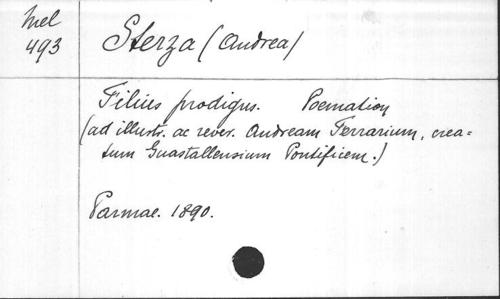 Mel
493
Sterza (Andrea)
Filius prodigus. Poemation
(ad illustr. ac rever. Andream Ferrarium, crea=
tum Guastallensium Pontificem.)
Parmae. 1890.